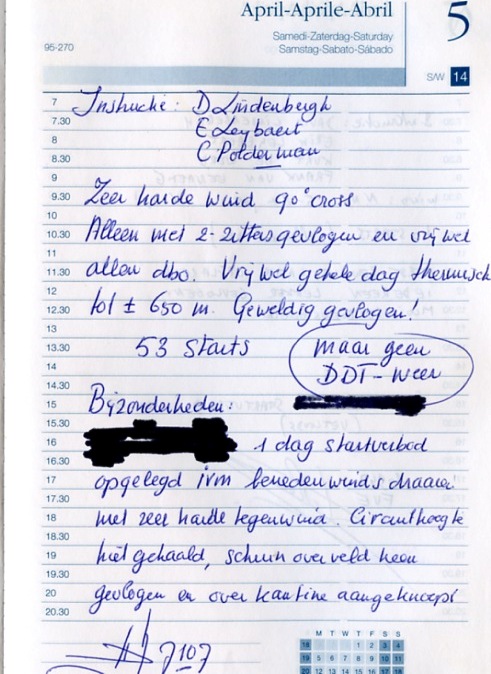 April-Aprile-Abril
5
Samedi-Zaterdag-Saturday
Samstag-Sabato-Sábado
95-270
S/W 14
7 Instructie: D Lindenbergh
7.30 E Leybaert
8 C Polderman
8.30
9
9.30 Zeer harde wind 90° cross
10
10.30 Alleen met 2-zitters gevlogen en vrijwel
11
11.30 allen dbo. Vrijwel gehele dag thermisch
12
12.30 tot ± 650 m. Geweldig gevlogen!
13
13.30 53 starts maar geen
14 DDT-weer
14.30
15 Bijzonderheden:
15.30
16 1 dag startverbod
16.30
17 opgelegd ivm benedenwinds draaien
17.30
18 met zeer harde tegenwind. Circuithoogte
18.30
19 niet gehaald, schuin over veld heen
19.30
20 gevlogen en over kantine aangeknoopt
20.30
7107
M T W T F S S
18 1 2 3 4
19 5 6 7 8 9 10 11
20 12 13 14 15 16 17 18